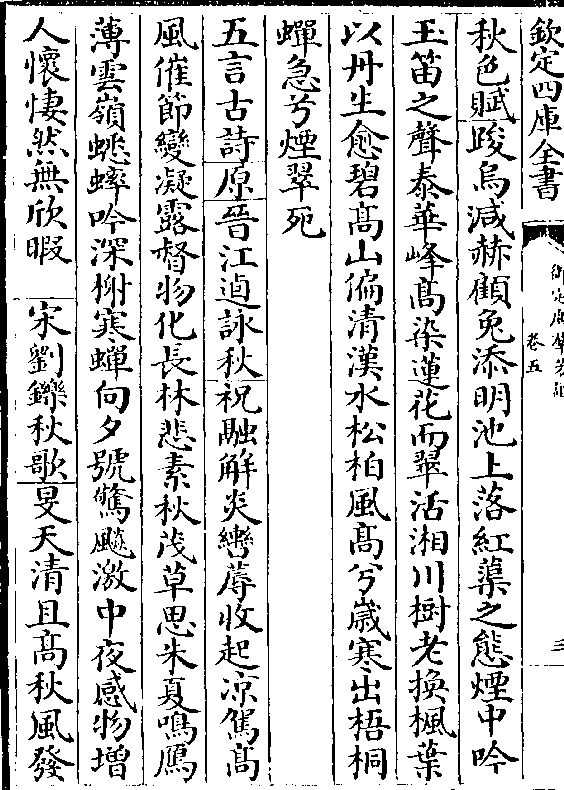 欽定四庫全書
卷五
三
秋色賦踆烏減赫顧兔添明池上落紅蕖之態煙中吟
玉笛之聲泰華峰高染蓮花而翠活湘川樹老換楓葉
以丹生愈碧高山偏清漢水松柏風高兮嵗寒出梧桐
蟬急兮煙翠死
五言古詩原晉江逌詠秋祝融解炎轡蓐收起凉駕高
風催節變凝露督物化長林悲素秋茂草思朱夏鳴鴈
薄雲嶺蟋蟀吟深榭寒蟬向夕號驚飈激中夜感物増
人懷悽然無欣暇　宋劉鑠秋歌旻天清且高秋風發